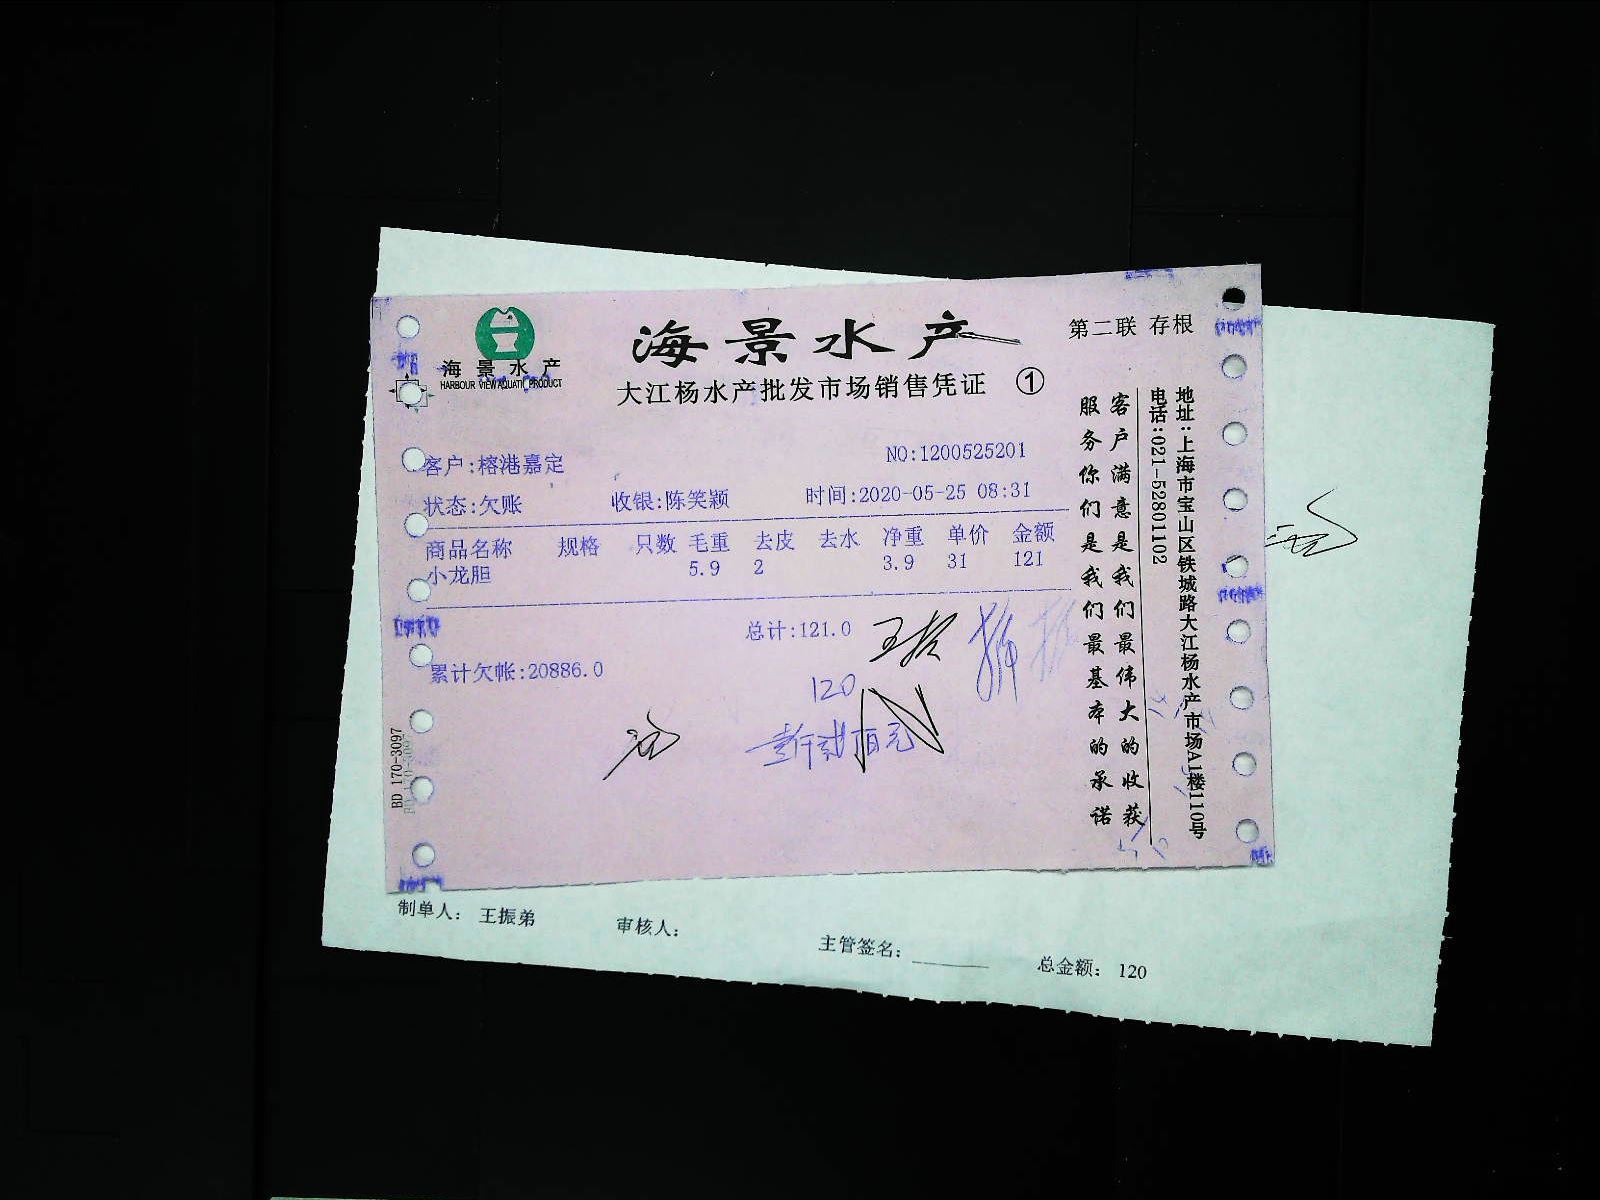 海景水产
HARBOUR VIEW AQUATIC PRODUCT
海景水产
第二联 存根
大江杨水产批发市场销售凭证 ①
客户:榕港嘉定
NO:1200525201
状态:欠账 收银:陈笑颖 时间:2020-05-25 08:31
商品名称 规格 只数 毛重 去皮 去水 净重 单价 金额
小龙胆 5.9 2 3.9 31 121
总计:121.0
累计欠帐:20886.0
120
客户满意是我们最伟大的收获
服务你们是我们最基本的承诺
地址:上海市宝山区铁城路大江杨水产市场A1楼110号
电话:021-52801102
BD 170-3097
制单人: 王振弟 审核人: 主管签名: 总金额: 120